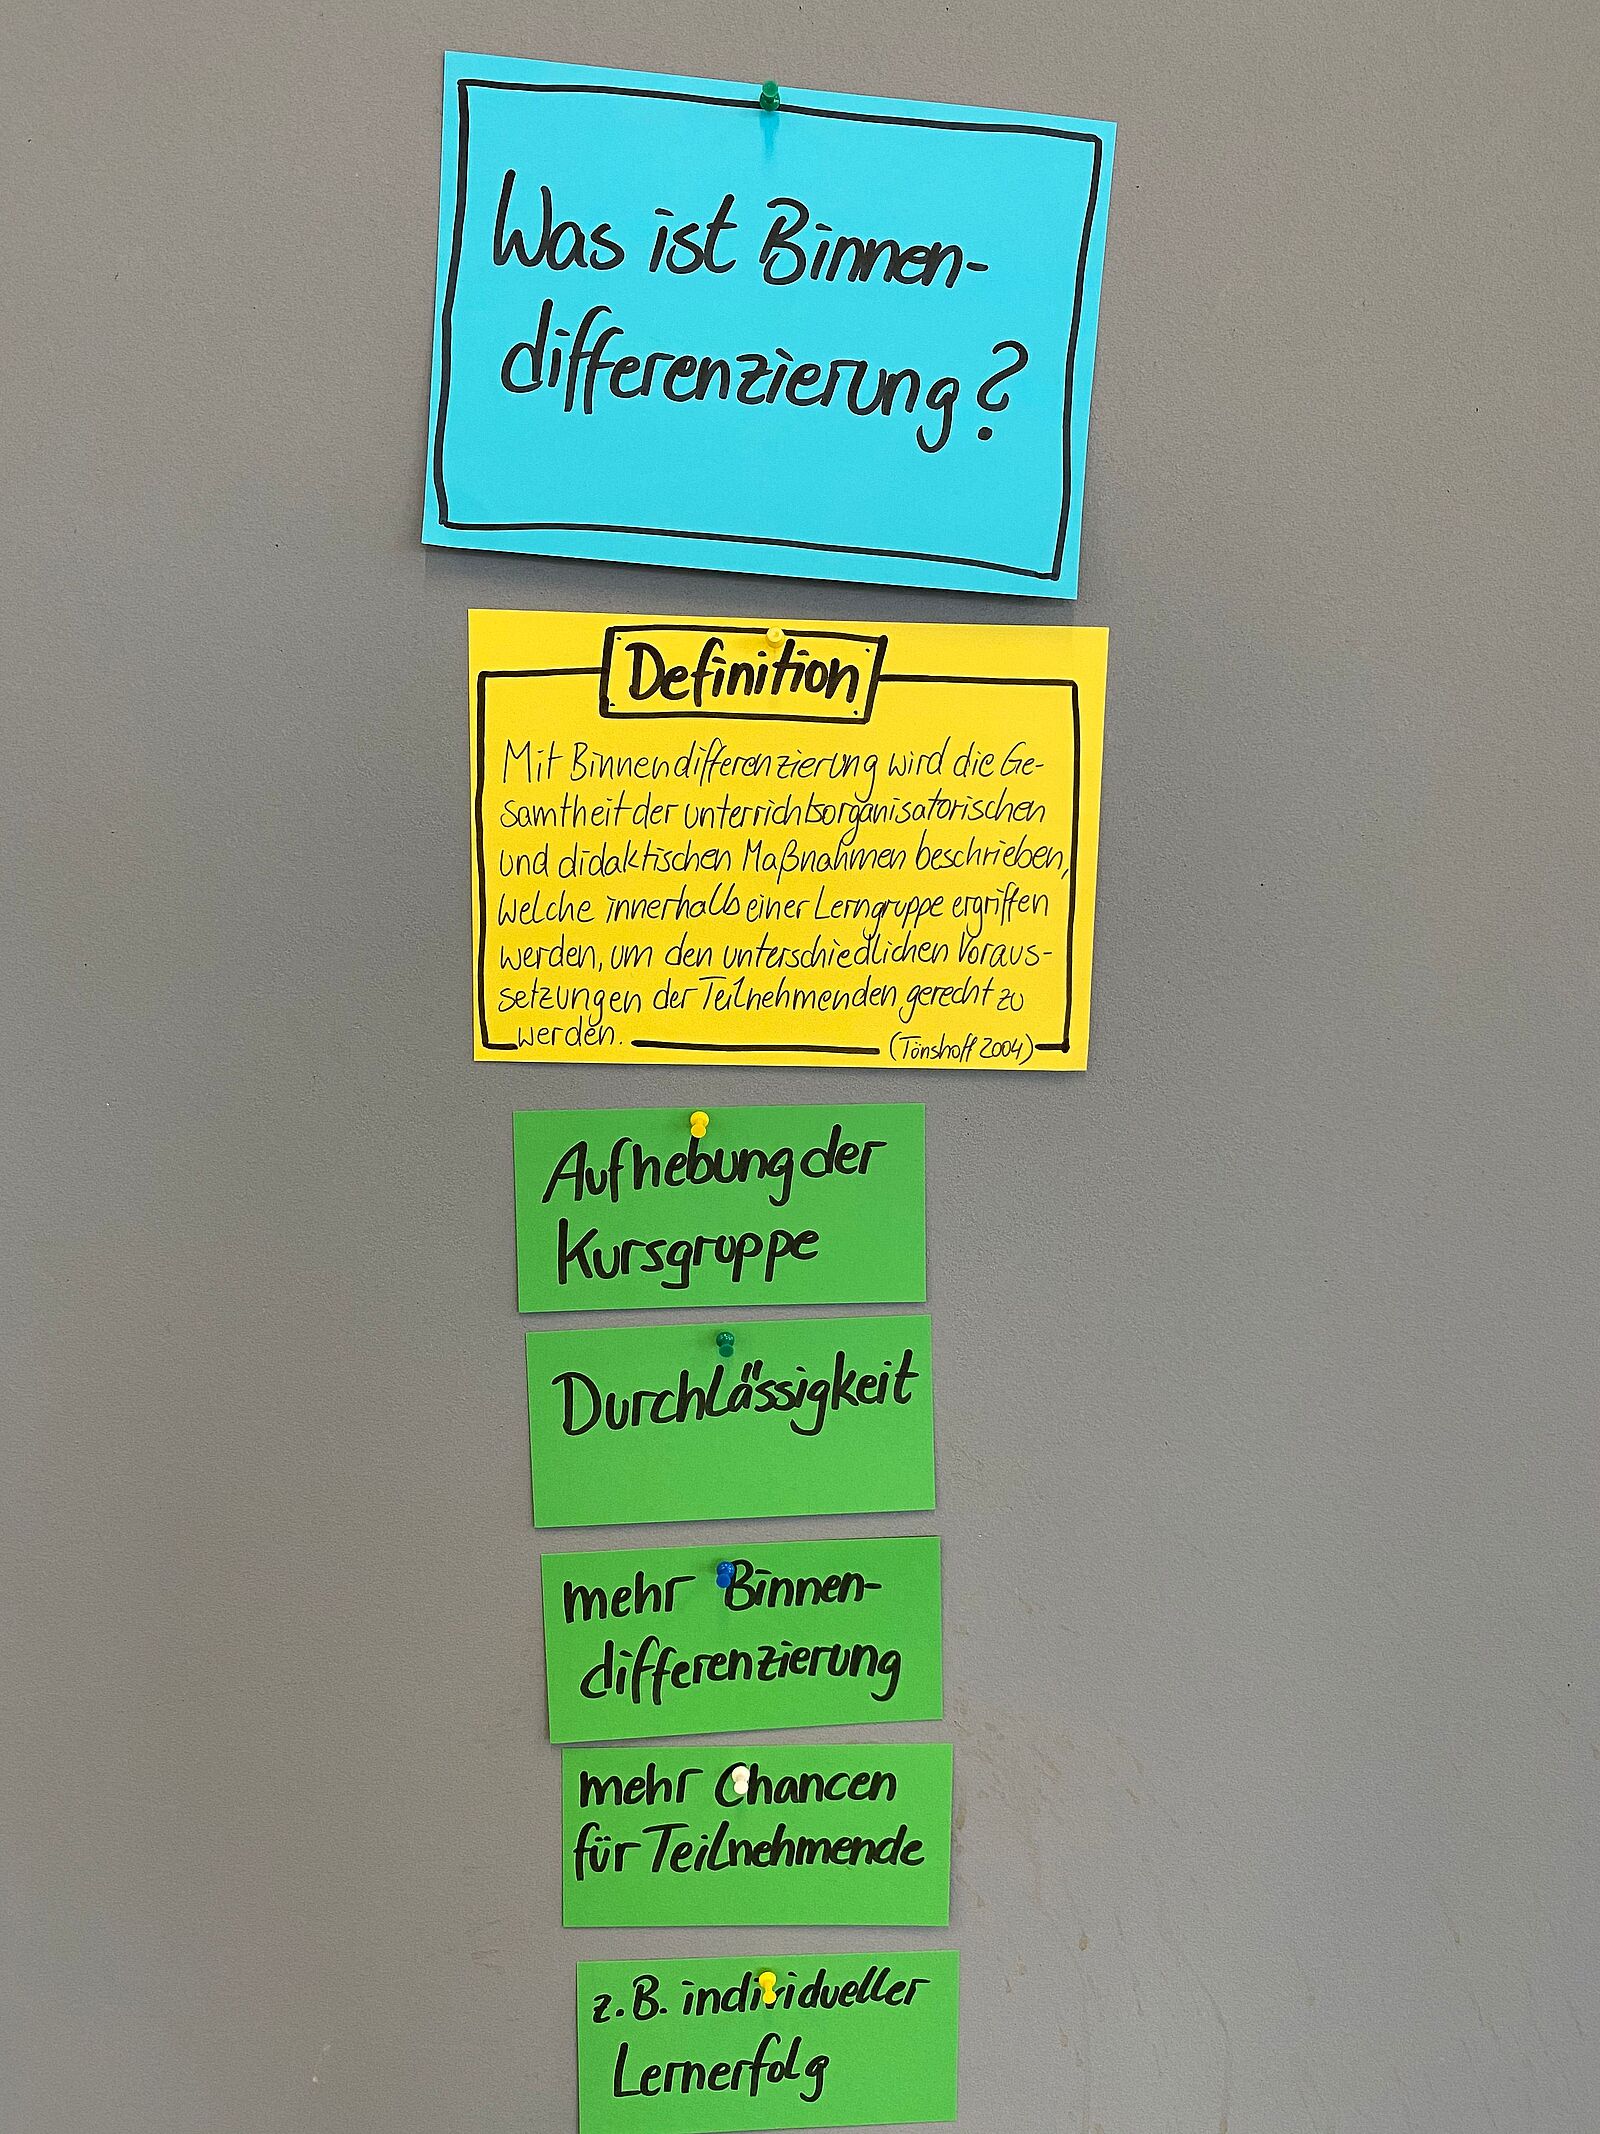 Was ist Binnen-
differenzierung?
Definition
Mit Binnendifferenzierung wird die Ge-
samtheit der unterrichtsorganisatorischen
und didaktischen Maßnahmen beschrieben,
welche innerhalb einer Lerngruppe ergriffen
werden, um den unterschiedlichen Voraus-
setzungen der Teilnehmenden gerecht zu
werden.
(Tönshoff 2004)
Aufhebung der
Kursgruppe
Durchlässigkeit
mehr Binnen-
differenzierung
mehr Chancen
für Teilnehmende
z.B. individueller
Lernerfolg